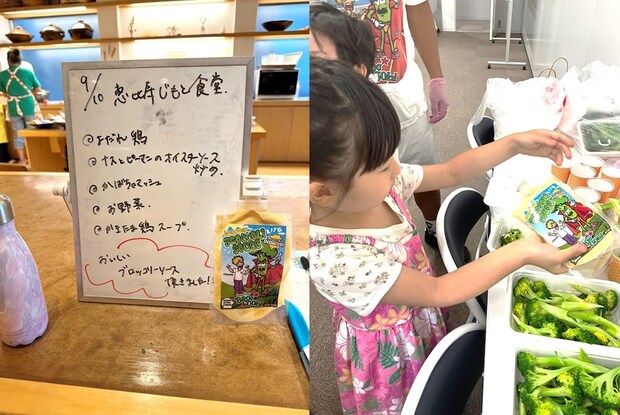 9/10 恵比寿じもと食堂.
@よだれ鶏
@ナスとピーマンのオイスターソース
炒め.
@かぼちゃマッシュ
@お野菜.
@かきたま鶏スープ.
おいしい
ブロッコリーソース
頂きました!